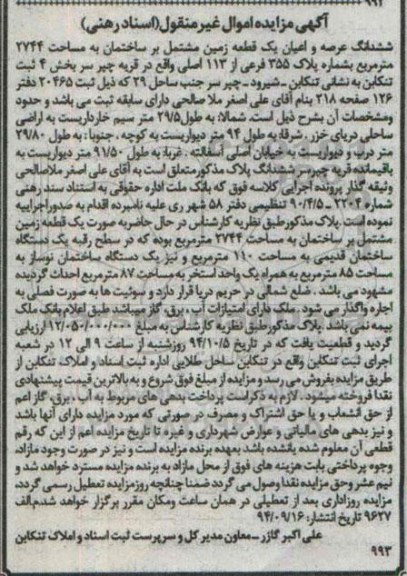 ۹۹۲
آگهی مزایده اموال غیرمنقول(اسناد رهنی)
ششدانگ عرصه و اعیان یک قطعه زمین مشتمل بر ساختمان به مساحت ۲۷۴۴
مترمربع بشماره پلاک ۳۵۵ فرعی از ۱۱۳ اصلی واقع در قریه چپر سر بخش ۴ ثبت
تنکابن به نشانی تنکابن - شیرود - چپر سر جنب ساحل ۲۹ که ذیل ثبت ۲۰۴۶۵ دفتر
۱۲۶ صفحه ۲۱۸ بنام آقای علی اصغر ملا صالحی دارای سابقه ثبت می باشد و حدود
ومشخصات آن بشرح ذیل است. شمالا: به طول ۲۹/۵ متر سیم خارداریست به اراضی
ساحلی دریای خزر ، شرقا: به طول ۹۴ متر دیواریست به کوچه ، جنوبا: به طول ۲۹/۸۰
متر درب و دیواریست به خیابان اصلی آسفالته . غربا: به طول ۹۱/۵۰ متر دیواریست به
باقیمانده قریه چپرسر ششدانگ پلاک مذکور متعلق است به آقای علی اصغر ملاصالحی
وثیقه گذار پرونده اجرایی کلاسه فوق که بانک ملت اداره حقوقی به استناد سند رهنی
شماره ۲۲۰۴ - ۹۰/۴/۵ تنظیمی دفتر ۵۸ شهر ری علیه نامبرده اقدام به صدور اجراییه
نموده است. پلاک مذکور طبق نظریه کارشناس در حال حاضر به صورت یک قطعه زمین
مشتمل بر ساختمان به مساحت ۲۷۴۴ مترمربع بوده که در سطح رقبه یک دستگاه
ساختمان قدیمی به مساحت ۱۱۰ مترمربع و نیز یک دستگاه ساختمان نوساز به
مساحت ۸۵ مترمربع به همراه یک واحد استخر به مساحت ۸۷ مترمربع احداث گردیده
مشهود می باشد . ضلع شمالی در حریم دریا قرار دارد و سوئیت ها به صورت فصلی به
اجاره واگذار می شود . ملک دارای امتیازات آب ، برق، گاز میباشد طبق اعلام بانک ملک
بیمه نمی باشد. پلاک مذکور طبق نظریه کارشناس به مبلغ ۱۲/۰۵۰/۰۰۰/۰۰۰ ارزیابی
گردید و قطعیت یافت که در تاریخ ۹۴/۱۰/۵ روز شنبه از ساعت ۹ الی ۱۲ در شعبه
اجرای ثبت تنکابن واقع در تنکابن ساحل طلایی اداره ثبت اسناد و املاک تنکابن از
طریق مزایده بفروش می رسد و مزایده از مبلغ فوق شروع و به بالاترین قیمت پیشنهادی
نقدا فروخته میشود. لازم به ذکر است پرداخت بدهی های مربوط به آب ، برق، گاز اعم
از حق انشعاب و یا حق اشتراک و مصرف در صورتی که مورد مزایده دارای آنها باشد
و نیز بدهی های مالیاتی و عوارض شهرداری و غیره تا تاریخ مزایده اعم از این که رقم
قطعی آن معلوم شده یا نشده باشد بعهده برنده مزایده است و نیز در صورت وجود مازاد،
وجوه پرداختی بابت هزینه های فوق از محل مازاد به برنده مزایده مسترد خواهد شد و
نیم عشر وحق مزایده نقدا وصول می گردد ضمنا چنانچه روز مزایده تعطیل رسمی گردد،
مزایده روز اداری بعد از تعطیلی در همان ساعت ومکان مقرر برگزار خواهد شد.م الف
۹۶۲۷ تاریخ انتشار: ۹۴/۰۹/۱۶
علی اکبر گازر - معاون مدیر کل و سرپرست ثبت اسناد و املاک تنکابن
۹۹۳